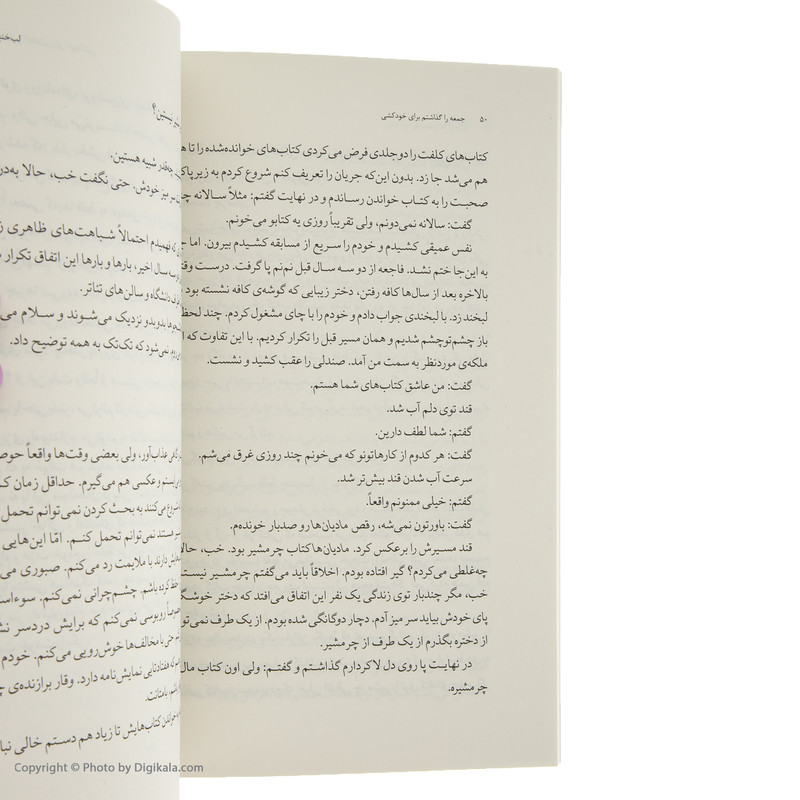 ۵۰ جمعه را گذاشتم برای خودکشی
کتاب‌های کلفت را دوجلدی فرض می‌کردی کتاب‌های خوانده‌شده را تا
هم می‌شد جا زد. بدون این‌که جریان را تعریف کنم شروع کردم به
صحبت را به کتاب خواندن رساندم و در نهایت گفتم: مثلاً سالانه
گفت: سالانه نمی‌دونم، ولی تقریباً روزی یه کتابو می‌خونم.
نفس عمیقی کشیدم و خودم را سریع از مسابقه کشیدم بیرون. اما
به این‌جا ختم نشد. فاجعه از دو سه سال قبل نم‌نم پا گرفت. درست
بالاخره بعد از سال‌ها کافه رفتن، دختر زیبایی که گوشه‌ی کافه نشسته بود
لبخند زد. با لبخندی جواب دادم و خودم را با چای مشغول کردم. چند
باز چشم‌توچشم شدیم و همان مسیر قبل را تکرار کردیم. با این تفاوت که
ملکه‌ی موردنظر به سمت من آمد. صندلی را عقب کشید و نشست.
گفت: من عاشق کتاب‌های شما هستم.
قند توی دلم آب شد.
گفتم: شما لطف دارین.
گفت: هر کدوم از کارهاتونو که می‌خونم چند روزی غرق می‌شم.
سرعت آب شدن قند بیش‌تر شد.
گفتم: خیلی ممنونم واقعاً.
گفت: باورتون نمی‌شه، رقص مادیان‌ها رو صدبار خونده‌م.
قند مسیرش را برعکس کرد. مادیان‌ها کتاب چرمشیر بود. خب، حالا
چه‌غلطی می‌کردم؟ گیر افتاده بودم. اخلاقاً باید می‌گفتم چرمشیر
خب، مگر چندبار توی زندگی یک نفر این اتفاق می‌افتد که دختر
پای خودش بیاید سر میز آدم. دچار دوگانگی شده بودم. از یک طرف
از دختره بگذرم از یک طرف از چرمشیر.
در نهایت پا روی دل لاکردارم گذاشتم و گفتم: ولی اون کتاب مال
چرمشیره.
نیستین؟
چه‌قدر شبیه هستین.
سر میز خودش. حتی نگفت خب، حالا
که فهمیدم احتمالاً شباهت‌های ظاهری
سه سال اخیر، بارها و بارها این اتفاق تکرار
دانشگاه و سالن‌های تئاتر.
بدوبدو نزدیک می‌شوند و سلام
نمی‌شود که تک‌تک به همه توضیح داد.
عذاب‌آور، ولی بعضی وقت‌ها واقعاً
و عکسی هم می‌گیرم. حداقل زمان
شروع می‌کنند به بحث کردن نمی‌توانم تحمل
هستند نمی‌توانم تحمل کنم. امّا این‌هایی
دارند با ملایمت رد می‌کنم. صبوری
کرده باشم. چشم‌چرانی نمی‌کنم.
روبوسی نمی‌کنم که برایش دردسر
حتی با مخالف‌ها خوش‌رویی می‌کنم. خودم
هفتادتایی نمایش‌نامه دارد. وقار برازنده‌ی
باشم، بامتانت.
خواندن کتاب‌هایش تا زیاد هم دستم خالی
Copyright © Photo by Digikala.com